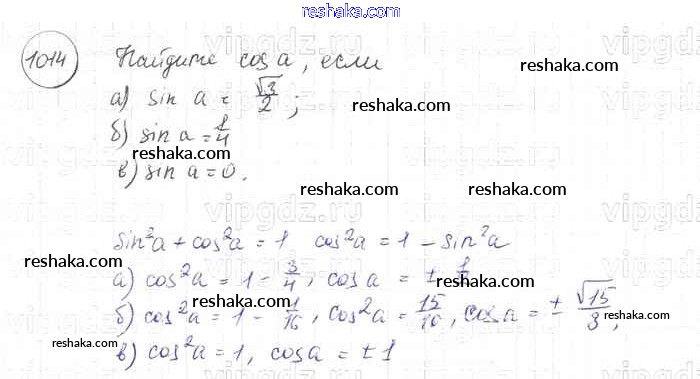 reshaka.com
1014 Найдите cos a, если
reshaka.com
а) sin a = √3/2;
reshaka.com
б) sin a = 1/4
reshaka.com
в) sin a = 0.
reshaka.com
sin²a + cos²a = 1 cos²a = 1 – sin²a
reshaka.com
а) cos²a = 1 – 3/4, cos a = ± 1
reshaka.com
reshaka.com
б) cos²a = 1 – 1/16, cos²a = 15/16, cos a = ± √15/3,
reshaka.com
reshaka.com
в) cos²a = 1, cos a = ± 1
reshaka.com